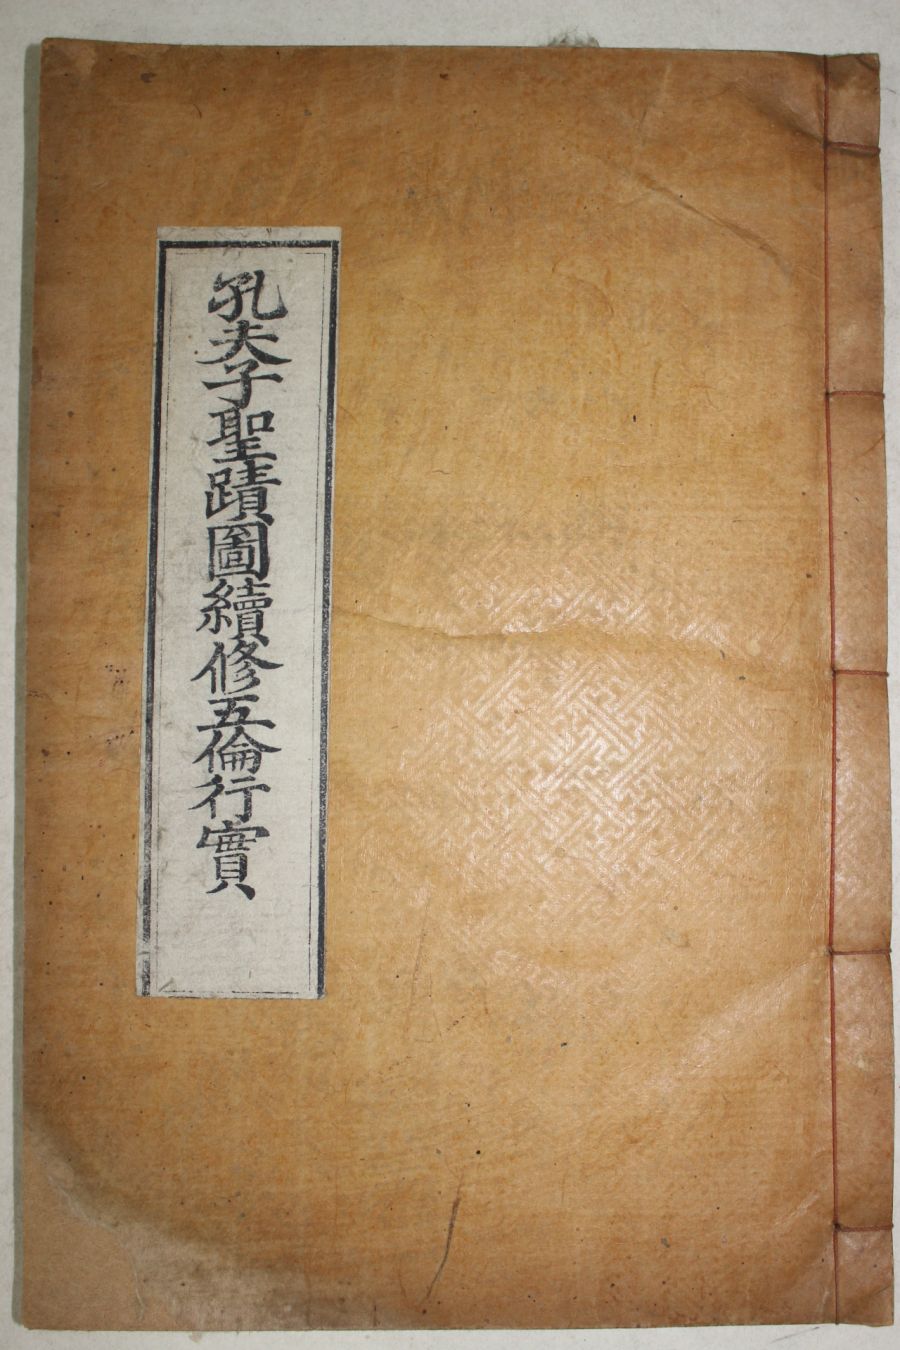 孔夫子聖蹟圖續修五倫行實